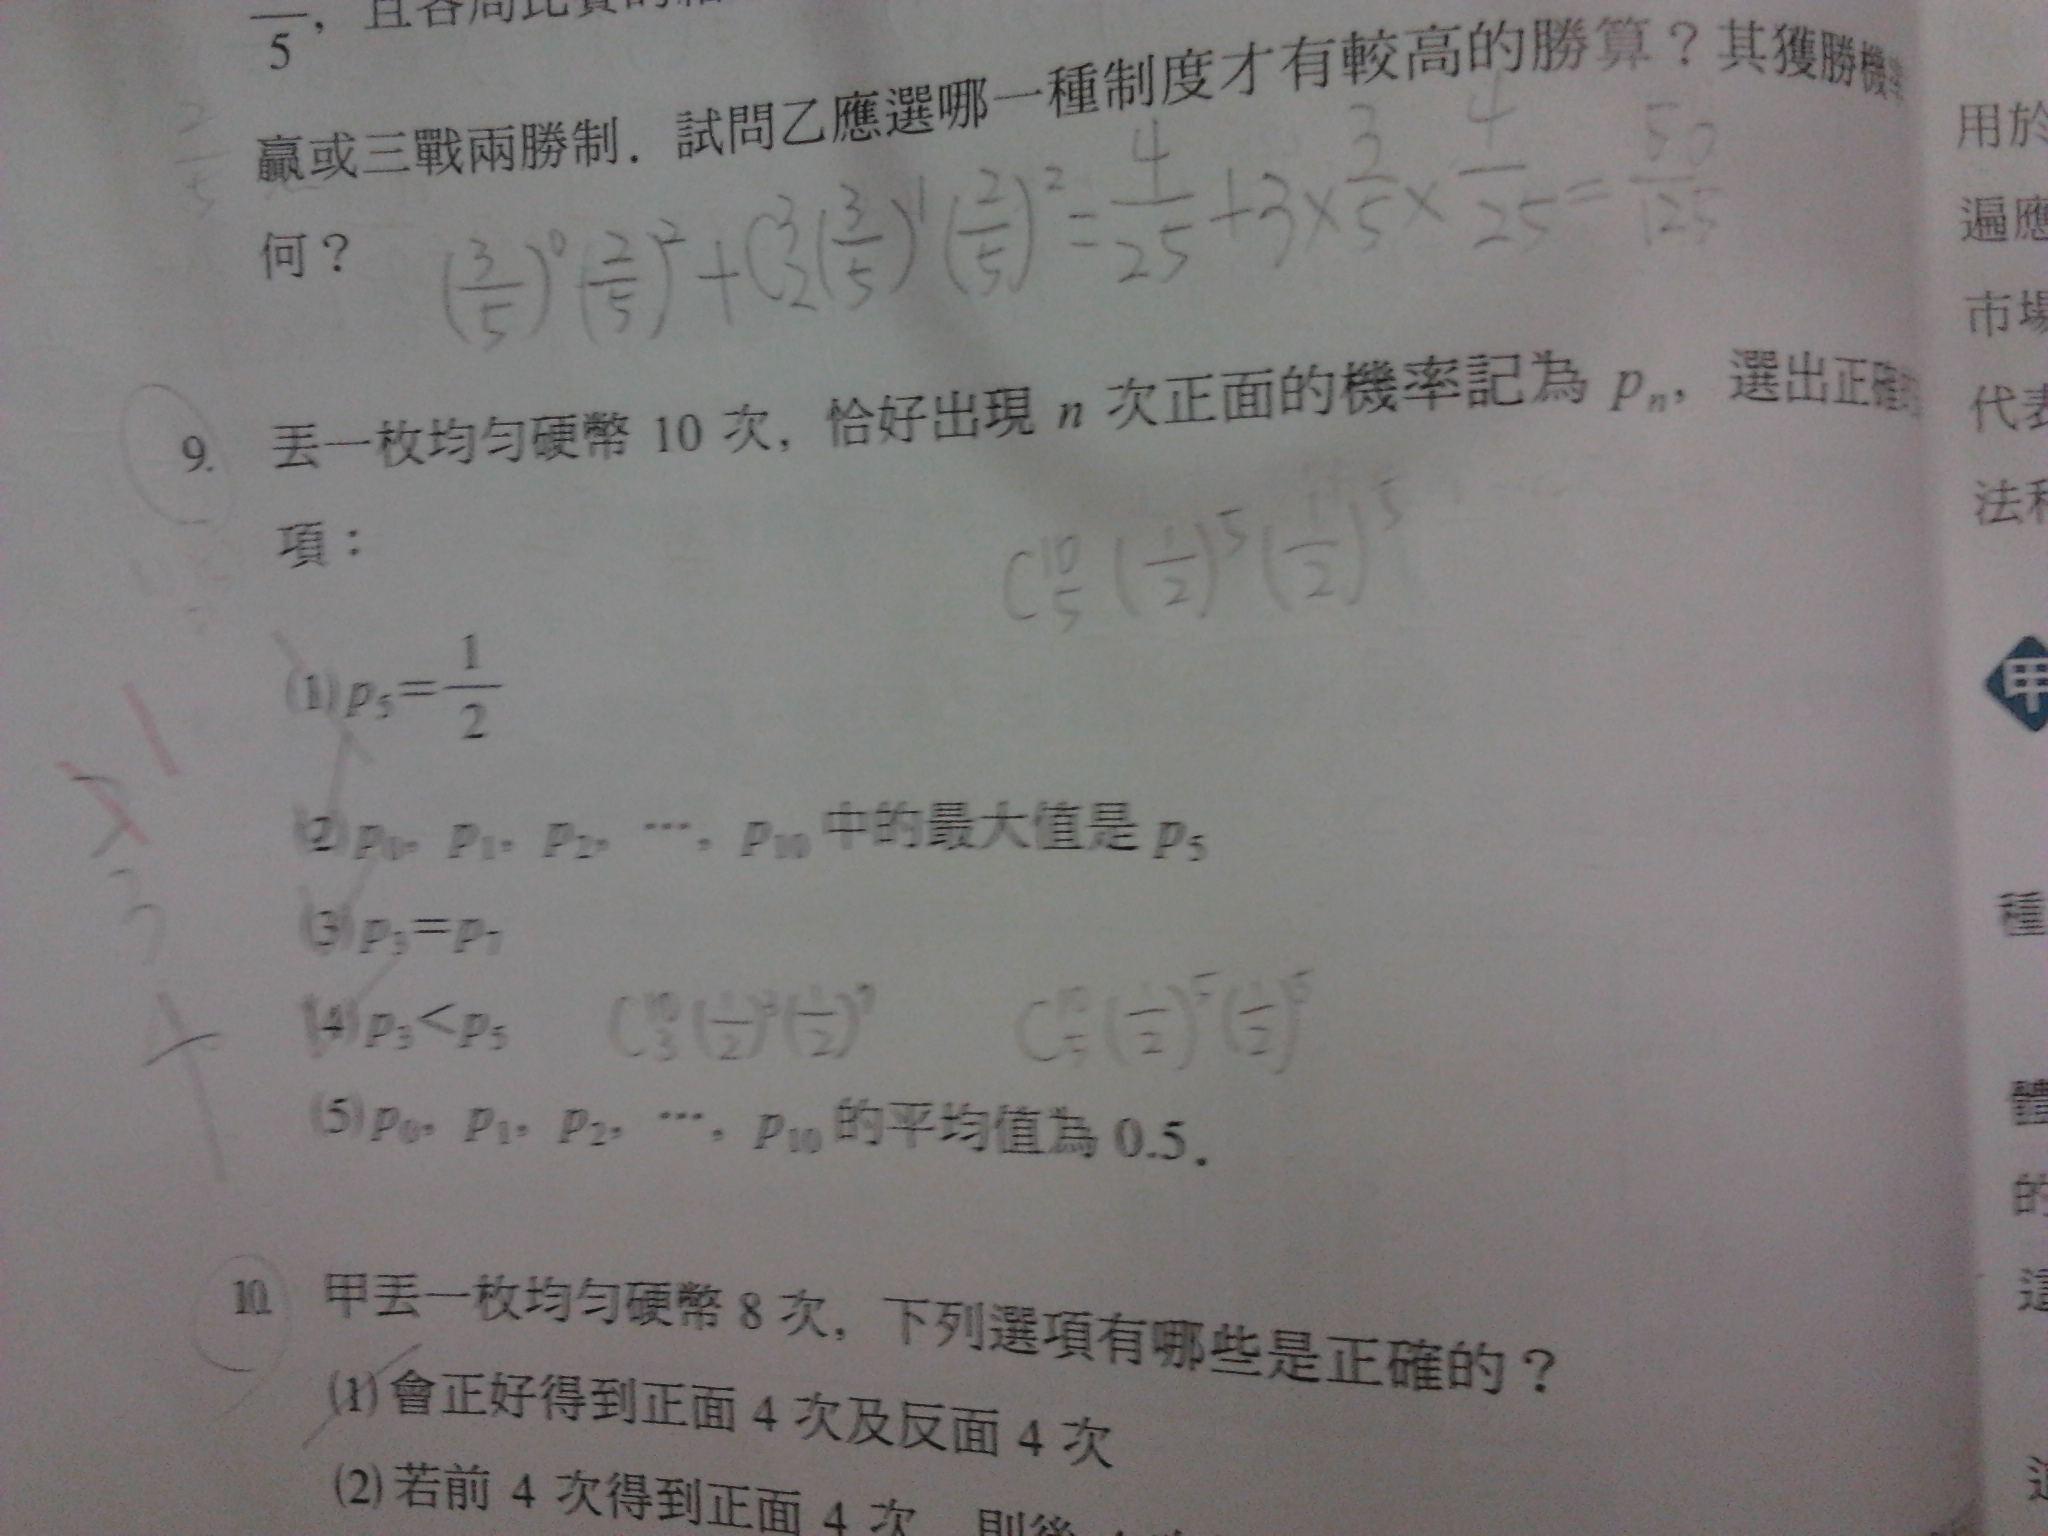 5
贏或三戰兩勝制．試問乙應選哪一種制度才有較高的勝算？其獲勝機率
何？
(3/5)^0 (2/5)^2 + C^3_2 (3/5)^1 (2/5)^2 = 4/25 + 3 × 3/5 × 4/25 =
9. 丟一枚均勻硬幣 10 次，恰好出現 n 次正面的機率記為 p_n，選出正確
項：
C^10_5 (1/2)^5 (1/2)^5
(1) p_5 = 1/2
(2) p_0，p_1，p_2，…，p_10 中的最大值是 p_5
(3) p_3 = p_7
(4) p_3 < p_5 C^10_3 (1/2)^3 (1/2)^7 C^10_5 (1/2)^5 (1/2)^5
(5) p_0，p_1，p_2，…，p_10 的平均值為 0.5．
10. 甲丟一枚均勻硬幣 8 次，下列選項有哪些是正確的？
(1) 會正好得到正面 4 次及反面 4 次
(2) 若前 4 次得到正面 4 次
用於
遍應
市場
代表
甲
種
體
的
這